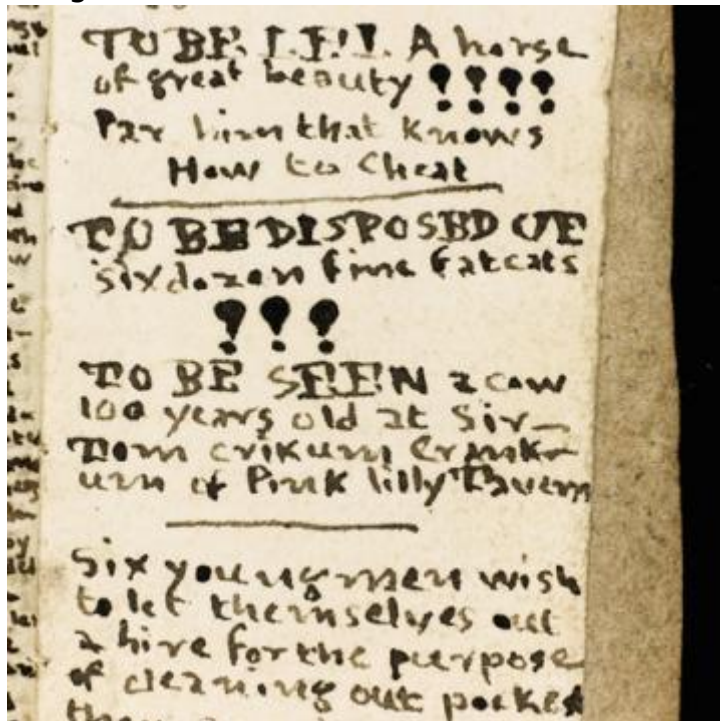 TO BE LET A horse
of great beauty !!!!
Par him that knows
How to Cheat
TO BE DISPOSED OF
six dozen fine fat cats
!!!
TO BE SEEN a cow
100 years old at Sir-
Tom crikum Crank-
urn of Pink lilly Tavern
Six young men wish
to let themselves out
a hire for the purpose
of cleaning out pocket